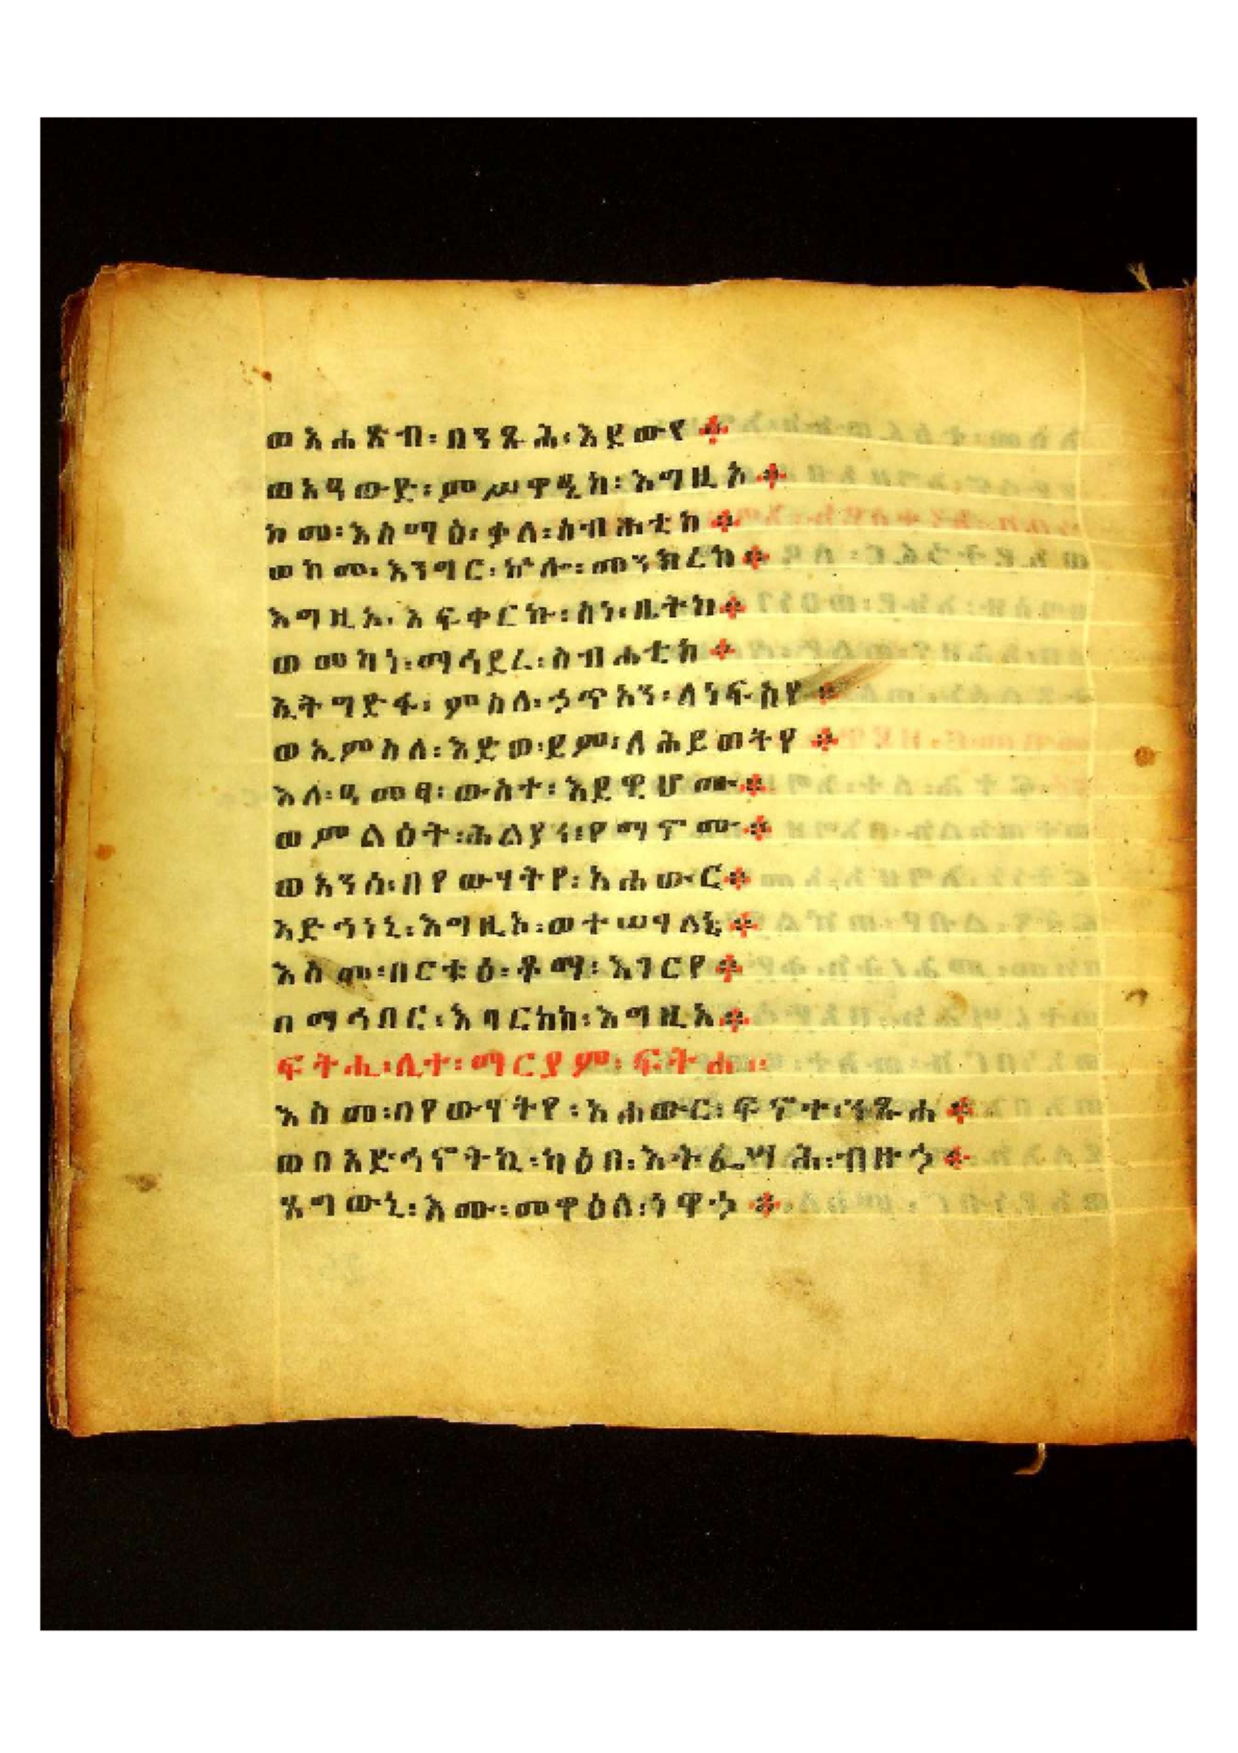 ወአሐጽብ፡በንጹሕ፡እደውየ፨
ወአዓውድ፡ምሥዋዒከ፡እግዚኦ፨
ከመ፡እስማዕ፡ቃለ፡ስብሐቲከ፨
ወከመ፡እንግር፡ኵሎ፡መንክረከ፨
እግዚኦ፡አፍቀርኩ፡ስነ፡ቤትከ፨
ወመካነ፡ማኅደረ፡ስብሐቲከ፨
ኢትግድፋ፡ምስለ፡ኃጥአን፡ለነፍስየ፨
ወኢምስለ፡እድወ፡ደም፡ለሕይወትየ፨
እለ፡ዓመፃ፡ውስተ፡እደዊሆሙ፨
ወምልዕት፡ሕልያነ፡የማኖሙ፨
ወአንሰ፡በየውሃትየ፡አሐውር፨
አድኅነኒ፡እግዚኦ፡ወተሣሃለኒ፨
እስመ፡በርቱዕ፡ቆማ፡እገርየ፨
በማኅበር፡እባርከከ፡እግዚኦ፨
ፍትሒ፡ሊተ፡ማርያም፡ፍትሐ፡
እስመ፡በየውሃትየ፡አሐውር፡ፍኖተ፡ንጹሐ፨
ወበአድኅኖትኪ፡ካዕበ፡እትፌሣሕ፡ብዙኃ፨
ጼግውኒ፡እሙ፡መዋዕለ፡ኅዋኃ፨